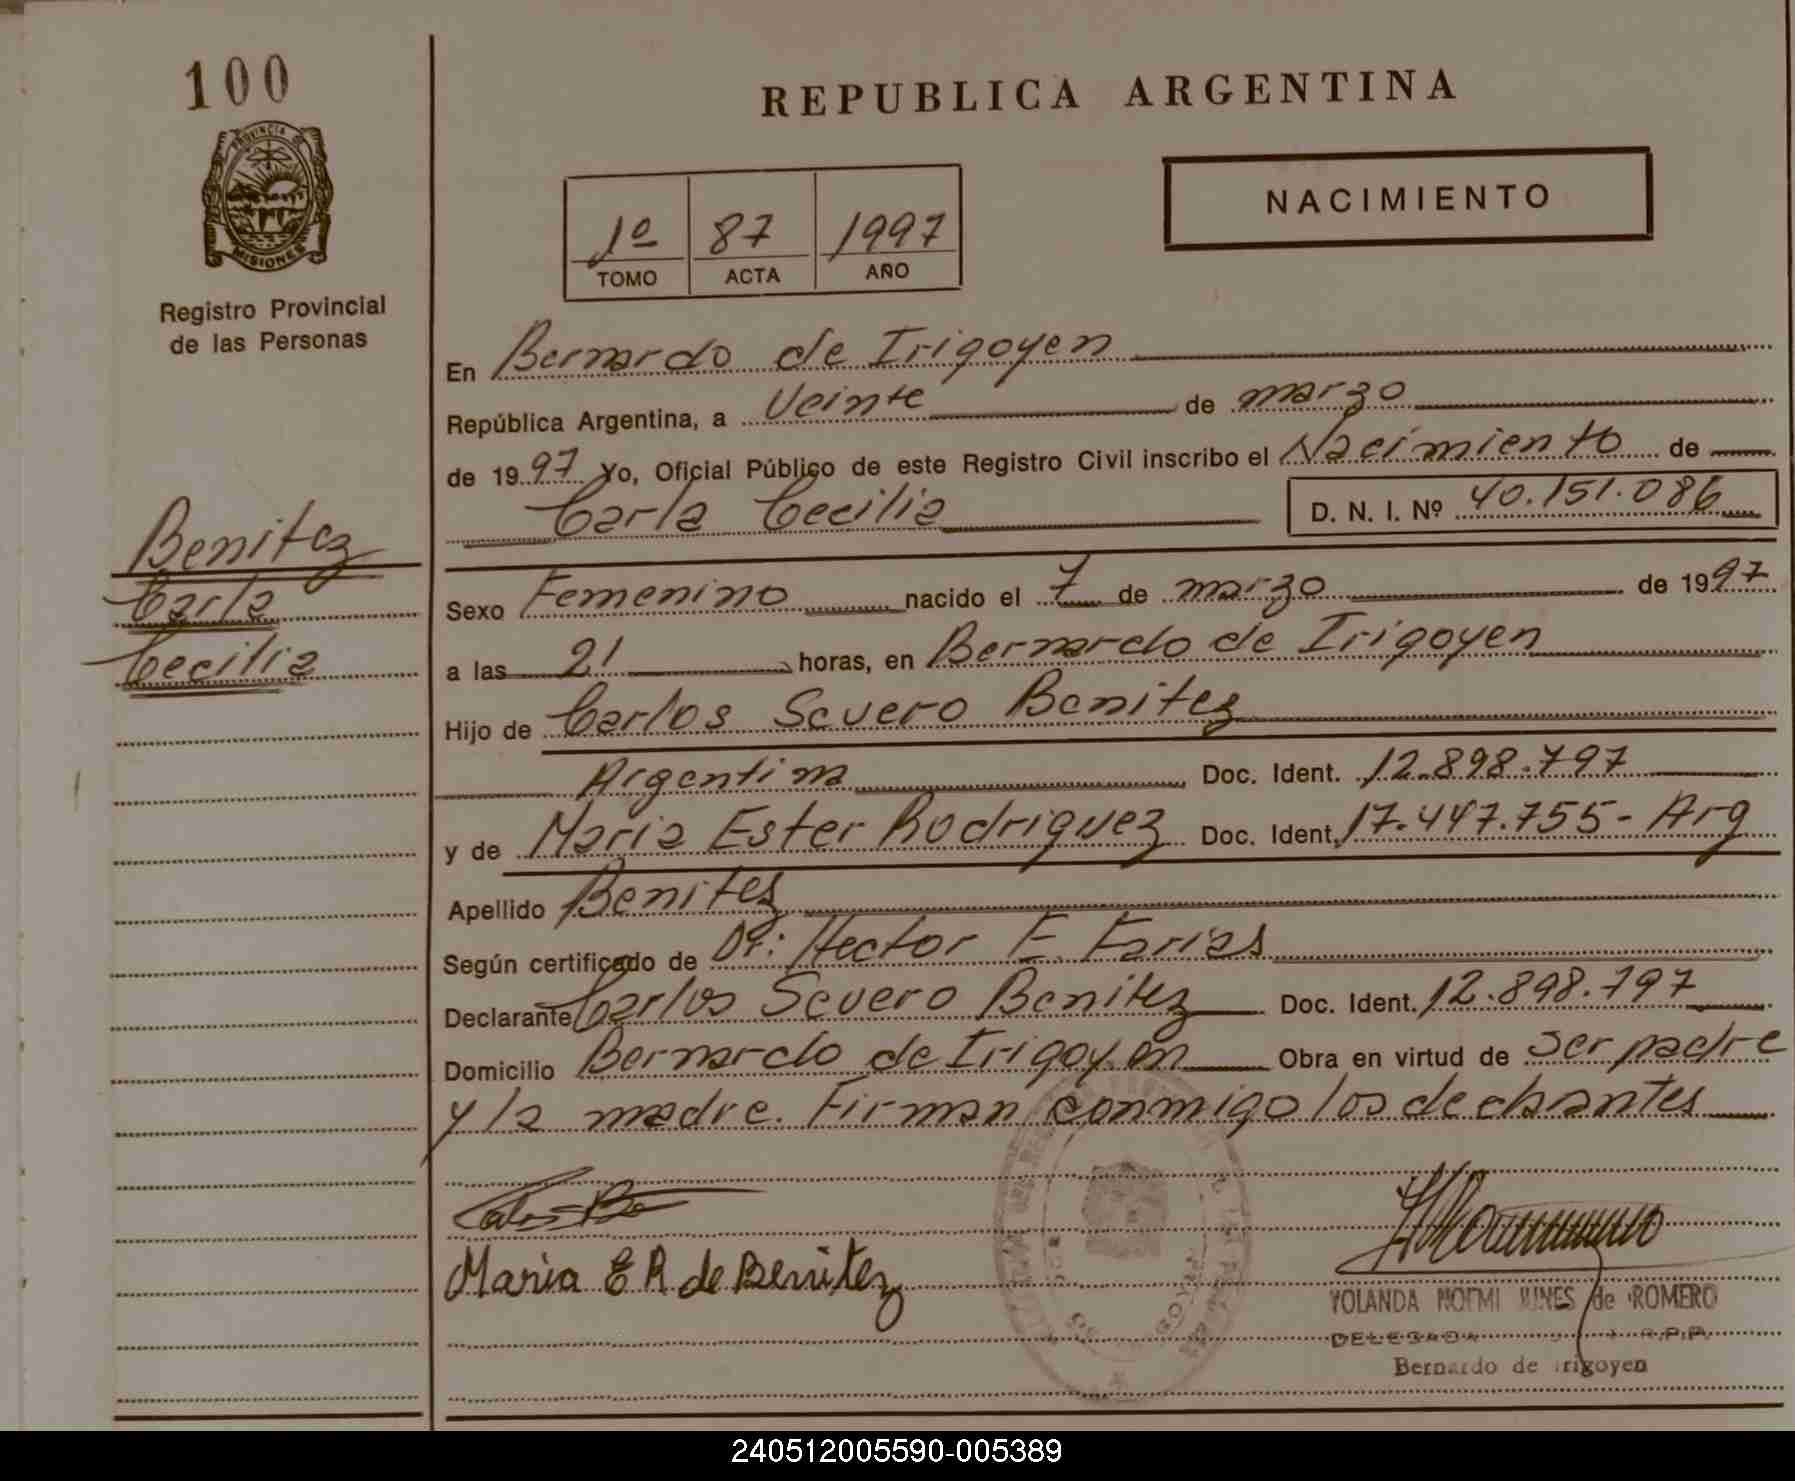 100
PROVINCIA DE
MISIONES
Registro Provincial
de las Personas
Benitez
Carla
Cecilia
REPUBLICA ARGENTINA
NACIMIENTO
1º 87 1997
TOMO ACTA AÑO
En Bernardo de Irigoyen
República Argentina, a Veinte de marzo
de 1997 Yo, Oficial Público de este Registro Civil inscribo el Nacimiento de
Carla Cecilia D. N. I. Nº 40.151.086
Sexo Femenino nacido el 7 de marzo de 1997
a las 21 horas, en Bernardo de Irigoyen
Hijo de Carlos Severo Benitez
Argentina Doc. Ident. 12.898.797
y de Maria Ester Rodriguez Doc. Ident. 17.447.755 - Arg
Apellido Benitez
Según certificado de Dr: Hector E. Farias
Declarante Carlos Severo Benitez Doc. Ident. 12.898.797
Domicilio Bernardo de Irigoyen Obra en virtud de ser padre
y la madre. Firman conmigo los
Maria E R de Benitez
YOLANDA NOEMI de ROMERO
DELEGADA R.P.P.
Bernardo de Irigoyen
240512005590-005389